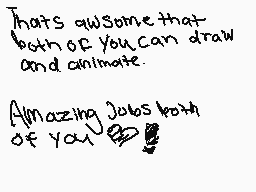 Thats awsome that
both of you can draw
and animate.
Amazing Jobs both
of you